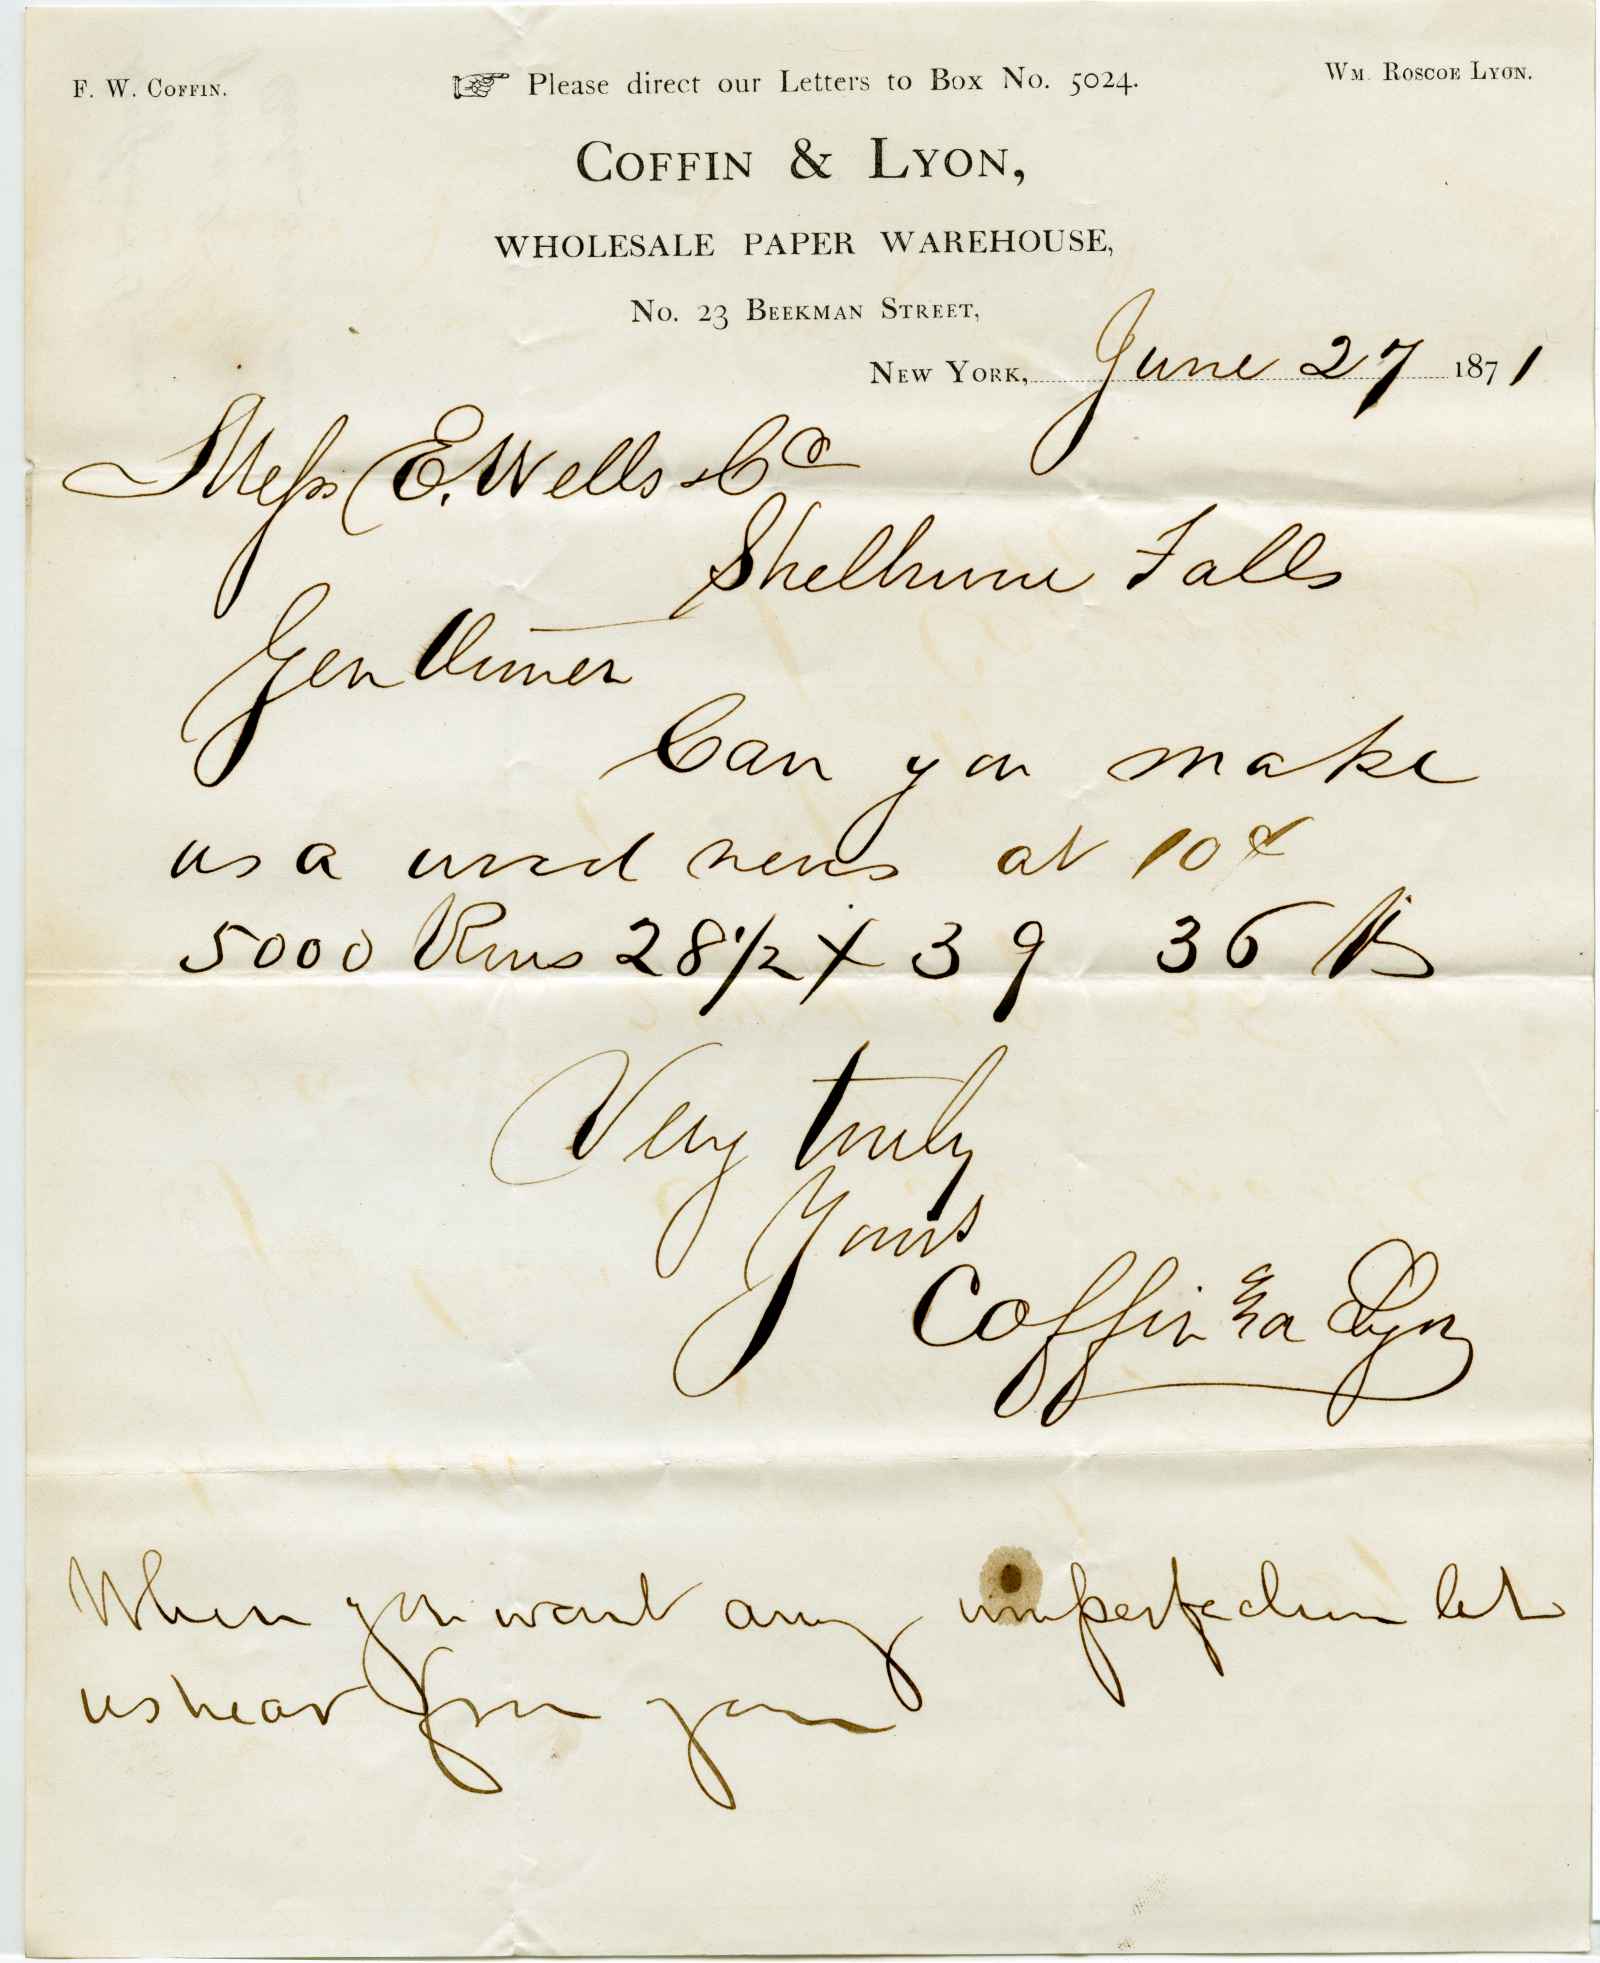 F. W. Coffin.
☞ Please direct our Letters to Box No. 5024.
Wm. Roscoe Lyon.
Coffin & Lyon,
WHOLESALE PAPER WAREHOUSE,
No. 23 Beekman Street,
New York, June 27 1871
Mess E. Wells & Co
Shelburne Falls
Gentlimen
Can you make
us a wood news at 10¢
5000 Rms 28 1/2 x 39 36 lbs
Very truly
Yours
Coffin & Lyon
When you want any imperfection let
us hear from you